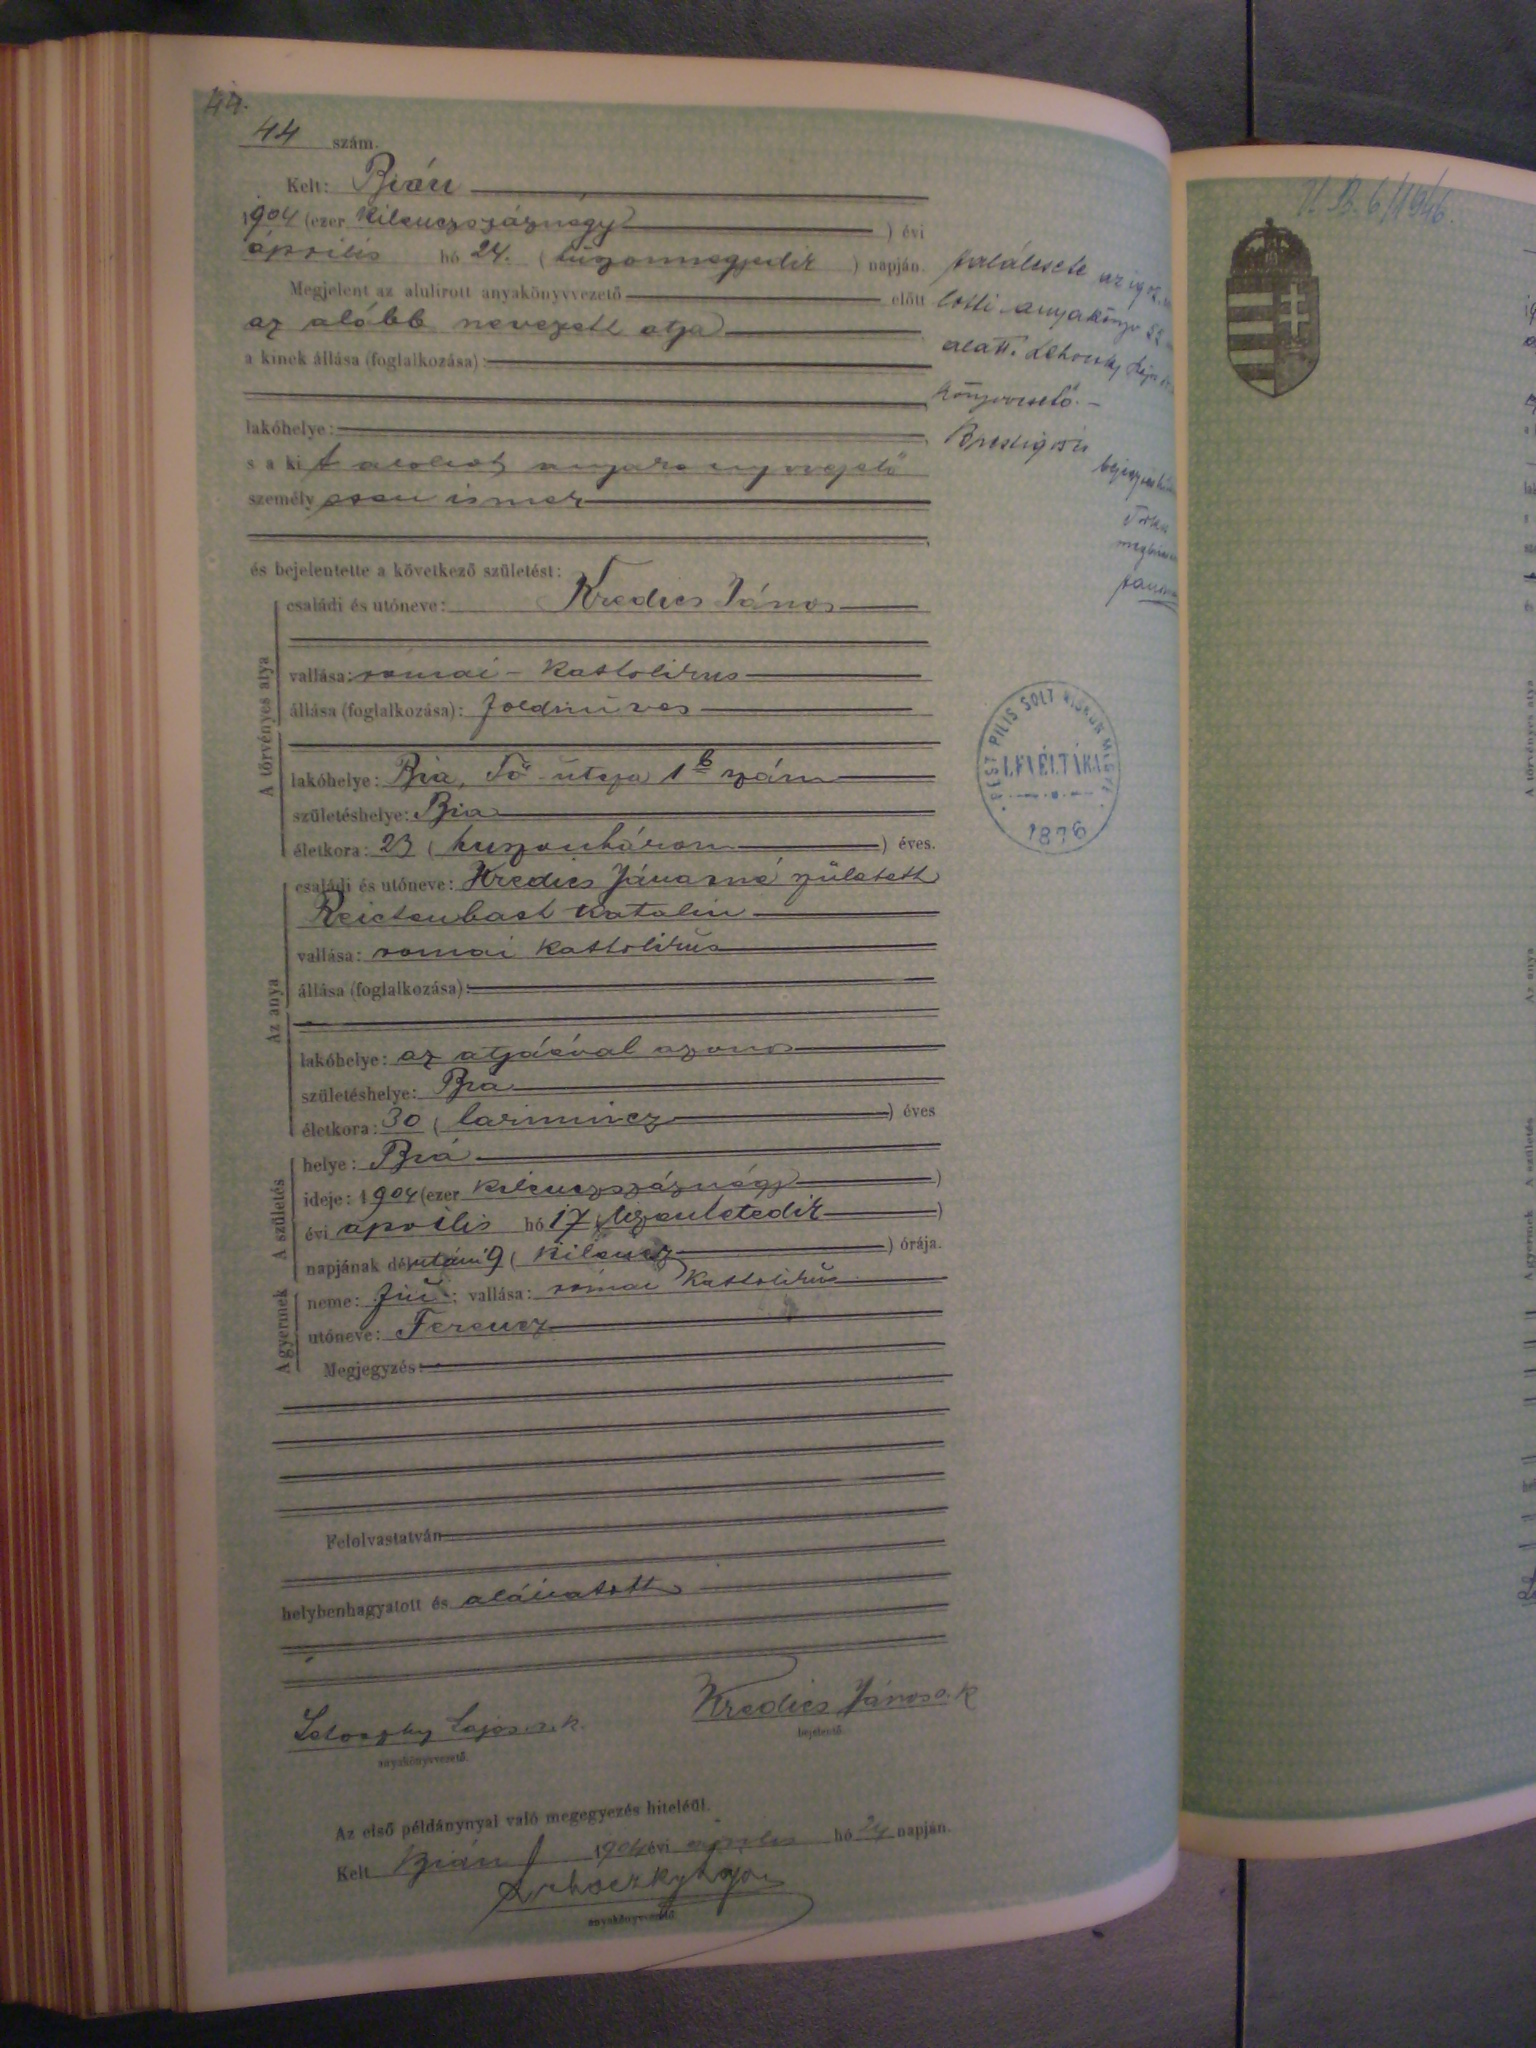 44.
44 szám.
Kelt: Bián
1904 (ezer kilenczszáznégy ) évi
április hó 24. (huszonnegyedik ) napján.
Megjelent az alulirott anyakönyvvezető előtt
az alább nevezett atja
a kinek állása (foglalkozása):
lakóhelye:
s a kit
személy esen ismer
és bejelentette a következő születést:
A törvényes atya
családi és utóneve: Kredics János
vallása: romai - kattolikus
állása (foglalkozása): földmüves
lakóhelye: Bia, Fő - utcza 1 b szám
születéshelye: Bia
életkora: 23 (huszonhárom ) éves.
Az anya
családi és utóneve: Kredics Jánosné született
Katalin
vallása: romai kattolikus
állása (foglalkozása):
lakóhelye: az atjáéval azonos
születéshelye: Bia
életkora: 30 (harmincz ) éves
A születés
helye: Bia
ideje: 1904 (ezer kilenczszáznégy )
évi április hó 17 (tizenhetedik )
napjának délutáni 9 (kilencz ) órája.
A gyermek
neme: fiú; vallása: romai kattolikus
utóneve: Ferencz
Megjegyzés:
Felolvastatván
helybenhagyatott és aláiratott
Lajos s. k.
anyakönyvvezető.
Kredics János s. k
bejelentő.
Az első példánynyal való megegyezés hiteléül.
Kelt Bián 1904 évi április hó 24 napján.
anyakönyvvezető.
anyakönyv
alatt.
könyvvezető. –
PEST PILIS SOLT KISKUN M
LEVÉLTÁRA
1876
6/1946.
A törvényes atya
Az anya
A születés
A gyermek